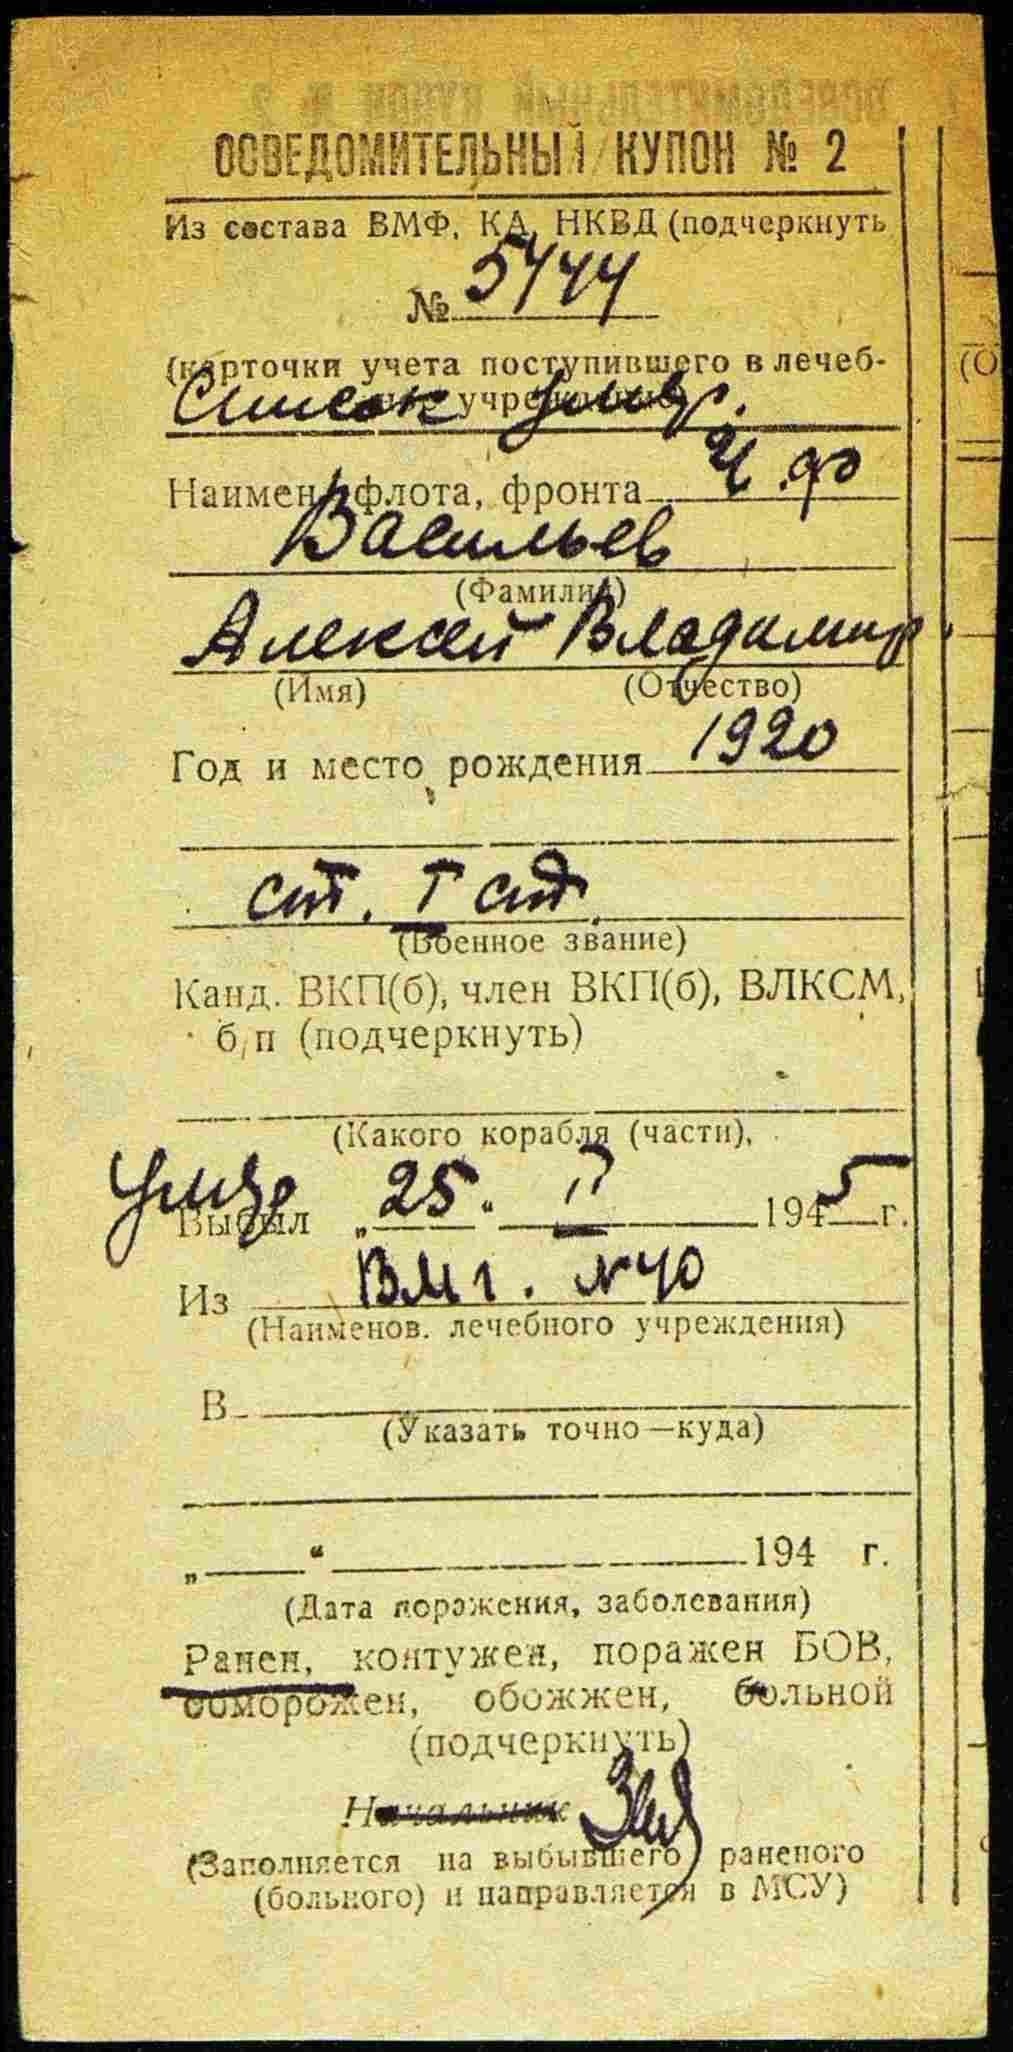 ОСВЕДОМИТЕЛЬНЫЙ КУПОН № 2
Из состава ВМФ, КА, НКВД (подчеркнуть
№ 5444
(карточки учета поступившего в лечеб-
учреждение)
Список умер.
Наимен. флота, фронта Ч.Ф
Васильев
(Фамилия)
Алексей Владимир.
(Имя) (Отчество)
Год и место рождения 1920
ст. I ст.
(Военное звание)
Канд. ВКП(б), член ВКП(б), ВЛКСМ,
б/п (подчеркнуть)
(Какого корабля (части),
умер
Выбыл „25“ II 1945 г.
Из ВМГ. №40
(Наименов. лечебного учреждения)
В
(Указать точно—куда)
„ “ 194 г.
(Дата поражения, заболевания)
Ранен, контужен, поражен БОВ,
обморожен, обожжен, больной
(подчеркнуть)
Начальник
(Заполняется на выбывшего раненого
(больного) и направляется в МСУ)